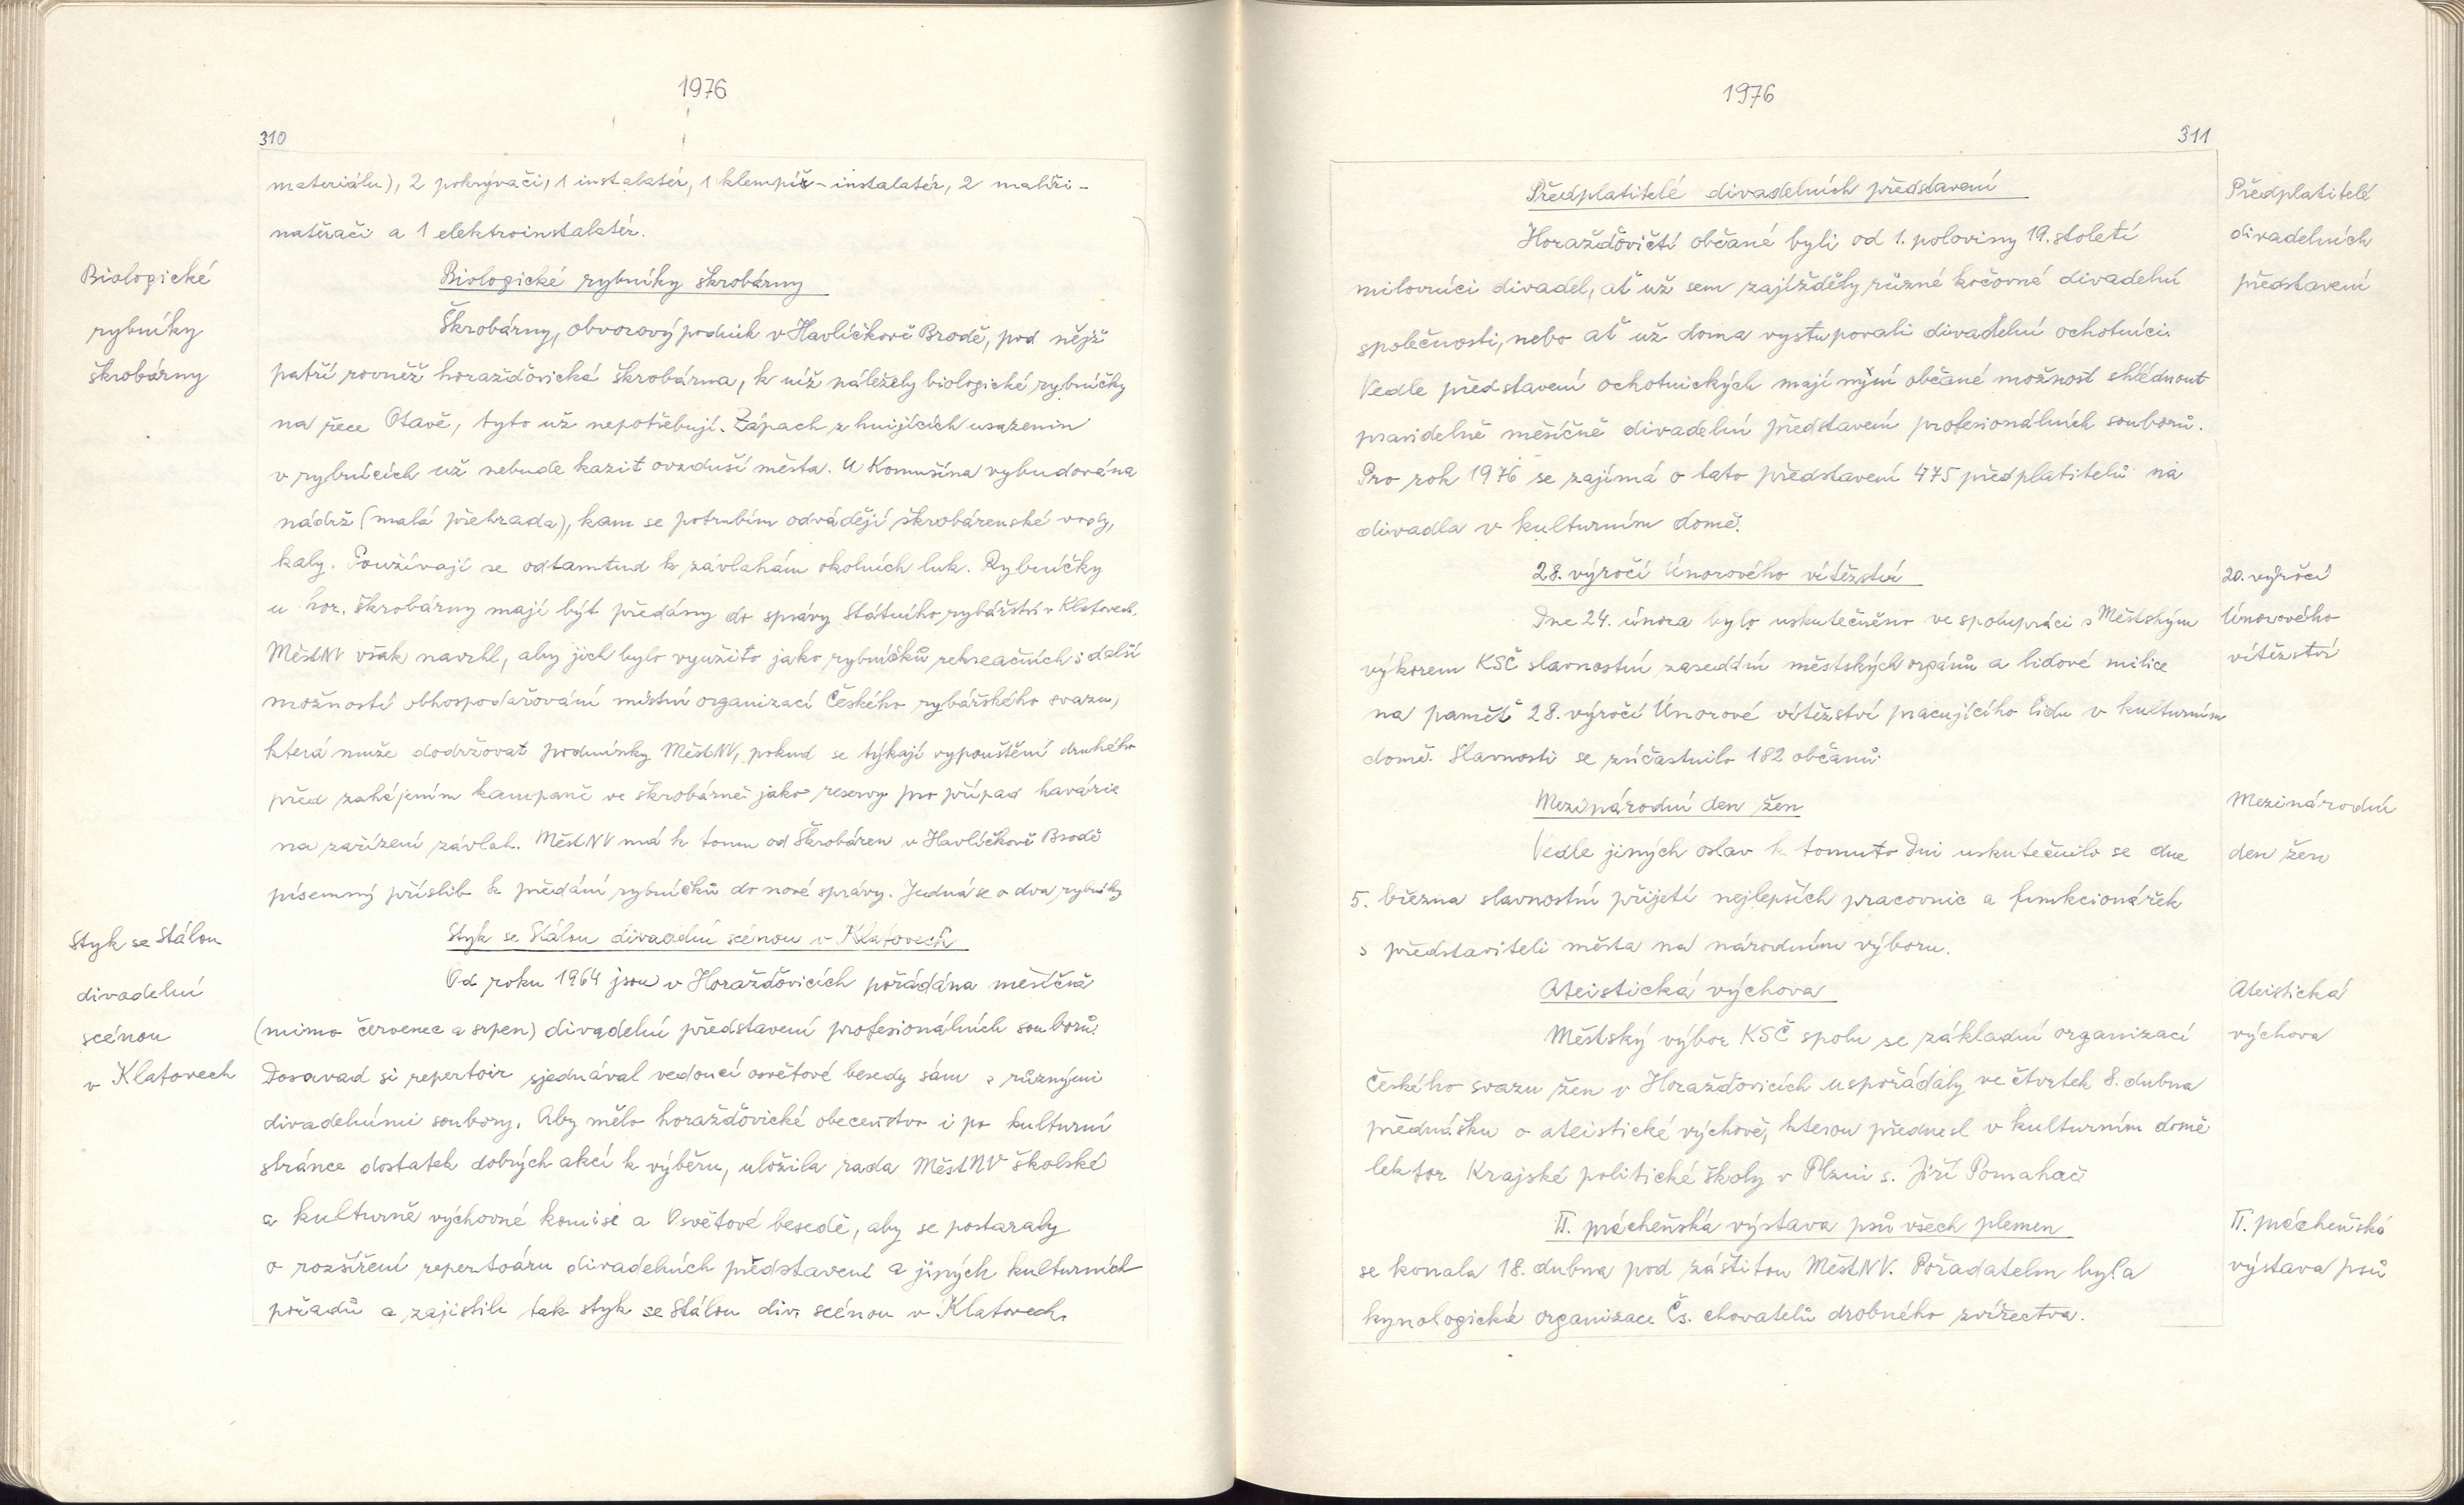 1976
310
materiálu), 2 pokrývači, 1 instalatér, 1 klempíř - instalatér, 2 malíři -
natěrači a 1 elektroinstalatér.
Biologické
rybníky
škrobárny
Biologické rybníky škrobárny
Škrobárny, oborový podnik v Havlíčkově Brodě, pod nějž
patří rovněž horažďovická škrobárna, k níž náležely biologické rybníčky
na řece Otavě, tyto už nepotřebují. Zápach z hnijících usazenin
v rybnících už nebude kazit ovzduší města. U Komušína vybudována
nádrž (malá přehrada), kam se potrubím odvádějí škrobárenské vody,
kaly. Používají se odtamtud k závlahám okolních luk. Rybníčky
u hor. škrobárny mají být předány do správy Státního rybářství v Klatovech.
MěstNV však navrhl, aby jich bylo využito jako rybníčků rekreačních s další
možností obhospodařování místní organizací Českého rybářského svazu,
která může dodržovat podmínky MěstNV, pokud se týkají vypouštění druhého
před zahájením kampaně ve škrobárně jako reservy pro případ havárie
na zařízení závlah. MěstNV má k tomu od Škrobáren v Havlíčkově Brodě
písemný příslib k předání rybníčků do nové správy. Jedná se o dva rybníky
Styk se Stálou
divadelní
scénou
v Klatovech
Styk se Stálou divadelní scénou v Klatovech
Od roku 1964 jsou v Horažďovicích pořádána měsíčně
(mimo červenec a srpen) divadelní představení profesionálních souborů.
Dosavad si repertoir sjednával vedoucí osvětové besedy sám s různými
divadelními soubory. Aby mělo horažďovické obecenstvo i po kulturní
stránce dostatek dobrých akcí k výběru, uložila rada MěstNV školské
a kulturně výchovné komisi a Osvětové besedě, aby se postaraly
o rozšíření repertoáru divadelních představení a jiných kulturních
pořadů a zajistili tak styk se Stálou div. scénou v Klatovech.
1976
311
Předplatitelé divadelních představení
Předplatitelé
divadelních
představení
Horažďovičtí občané byli od 1. poloviny 19. století
milovníci divadel, ať už sem zajížděly různé kočovné divadelní
společnosti, nebo ať už doma vystupovali divadelní ochotníci.
Vedle představení ochotnických mají nyní občané možnost shlédnout
pravidelně měsíčně divadelní představení profesionálních souborů.
Pro rok 1976 se zajímá o tato představení 475 předplatitelů na
divadla v kulturním domě.
28. výročí Únorového vítězství
20. výročí
Únorového
vítězství
Dne 24. února bylo uskutečněno ve spolupráci s Městským
výborem KSČ slavnostní zasedání městských orgánů a lidové milice
na paměť 28. výročí Únorové vítězství pracujícího lidu v kulturním
domě. Slavnosti se zúčastnilo 182 občanů.
Mezinárodní den žen
Mezinárodní
den žen
Vedle jiných oslav k tomuto Dni uskutečnilo se dne
5. března slavnostní přijetí nejlepších pracovnic a funkcionářek
s představiteli města na národním výboru.
Ateistická výchova
Ateistická
výchova
Městský výbor KSČ spolu se základní organizací
Českého svazu žen v Horažďovicích uspořádaly ve čtvrtek 8. dubna
přednášku o ateistické výchově, kterou přednesl v kulturním domě
lektor Krajské politické školy v Plzni s. Jiří Pomahač
II. prácheňská výstava psů všech plemen
II. prácheňská
výstava psů
se konala 18. dubna pod záštitou MěstNV. Pořadatelm byla
kynologická organizace Čs. chovatelů drobného zvířectva.